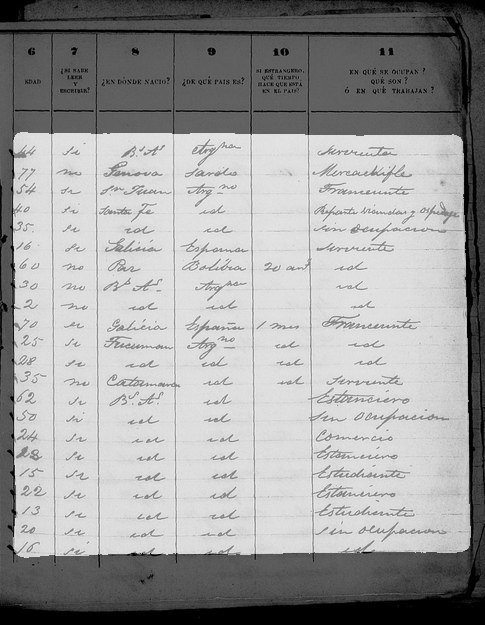 6 7 8 9 10 11
EDAD ¿SI SABE LEER Y ESCRIBIR? ¿EN DÓNDE NACIO? ¿DE QUÉ PAIS ES? SI ESTRANGERO, QUÉ TIEMPO HACE QUE ESTÁ EN EL PAIS? EN QUÉ SE OCUPAN? QUÉ SON? Ó EN QUÉ TRABAJAN?
44 si Bs As Argna sirvienta
77 no Genova Sardo
54 si Sn Juan Argno Transeunte
40 si Santa Fe id Reparte viandas y
35 si id id sin ocupacion
16 si Galicia Espana sirviente
60 no Paz Bolibia 20 ans id
30 no Bs As Argna id
2 no id id id
70 si Galicia España 1 mes Transeunte
25 si Tucuman Argno id id
28 si id id id id
35 no Catamarca id id Sirviente
62 si Bs As id Estanciero
50 si id id sin ocupacion
24 si id id Comercio
28 si id id Estanciero
15 si id id Estudiante
22 si id id Estanciero
13 si id id Estudiante
20 si id id sin ocupacion
16 si id id id